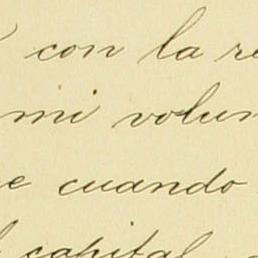 con la re
mi volun
e cuando
capital